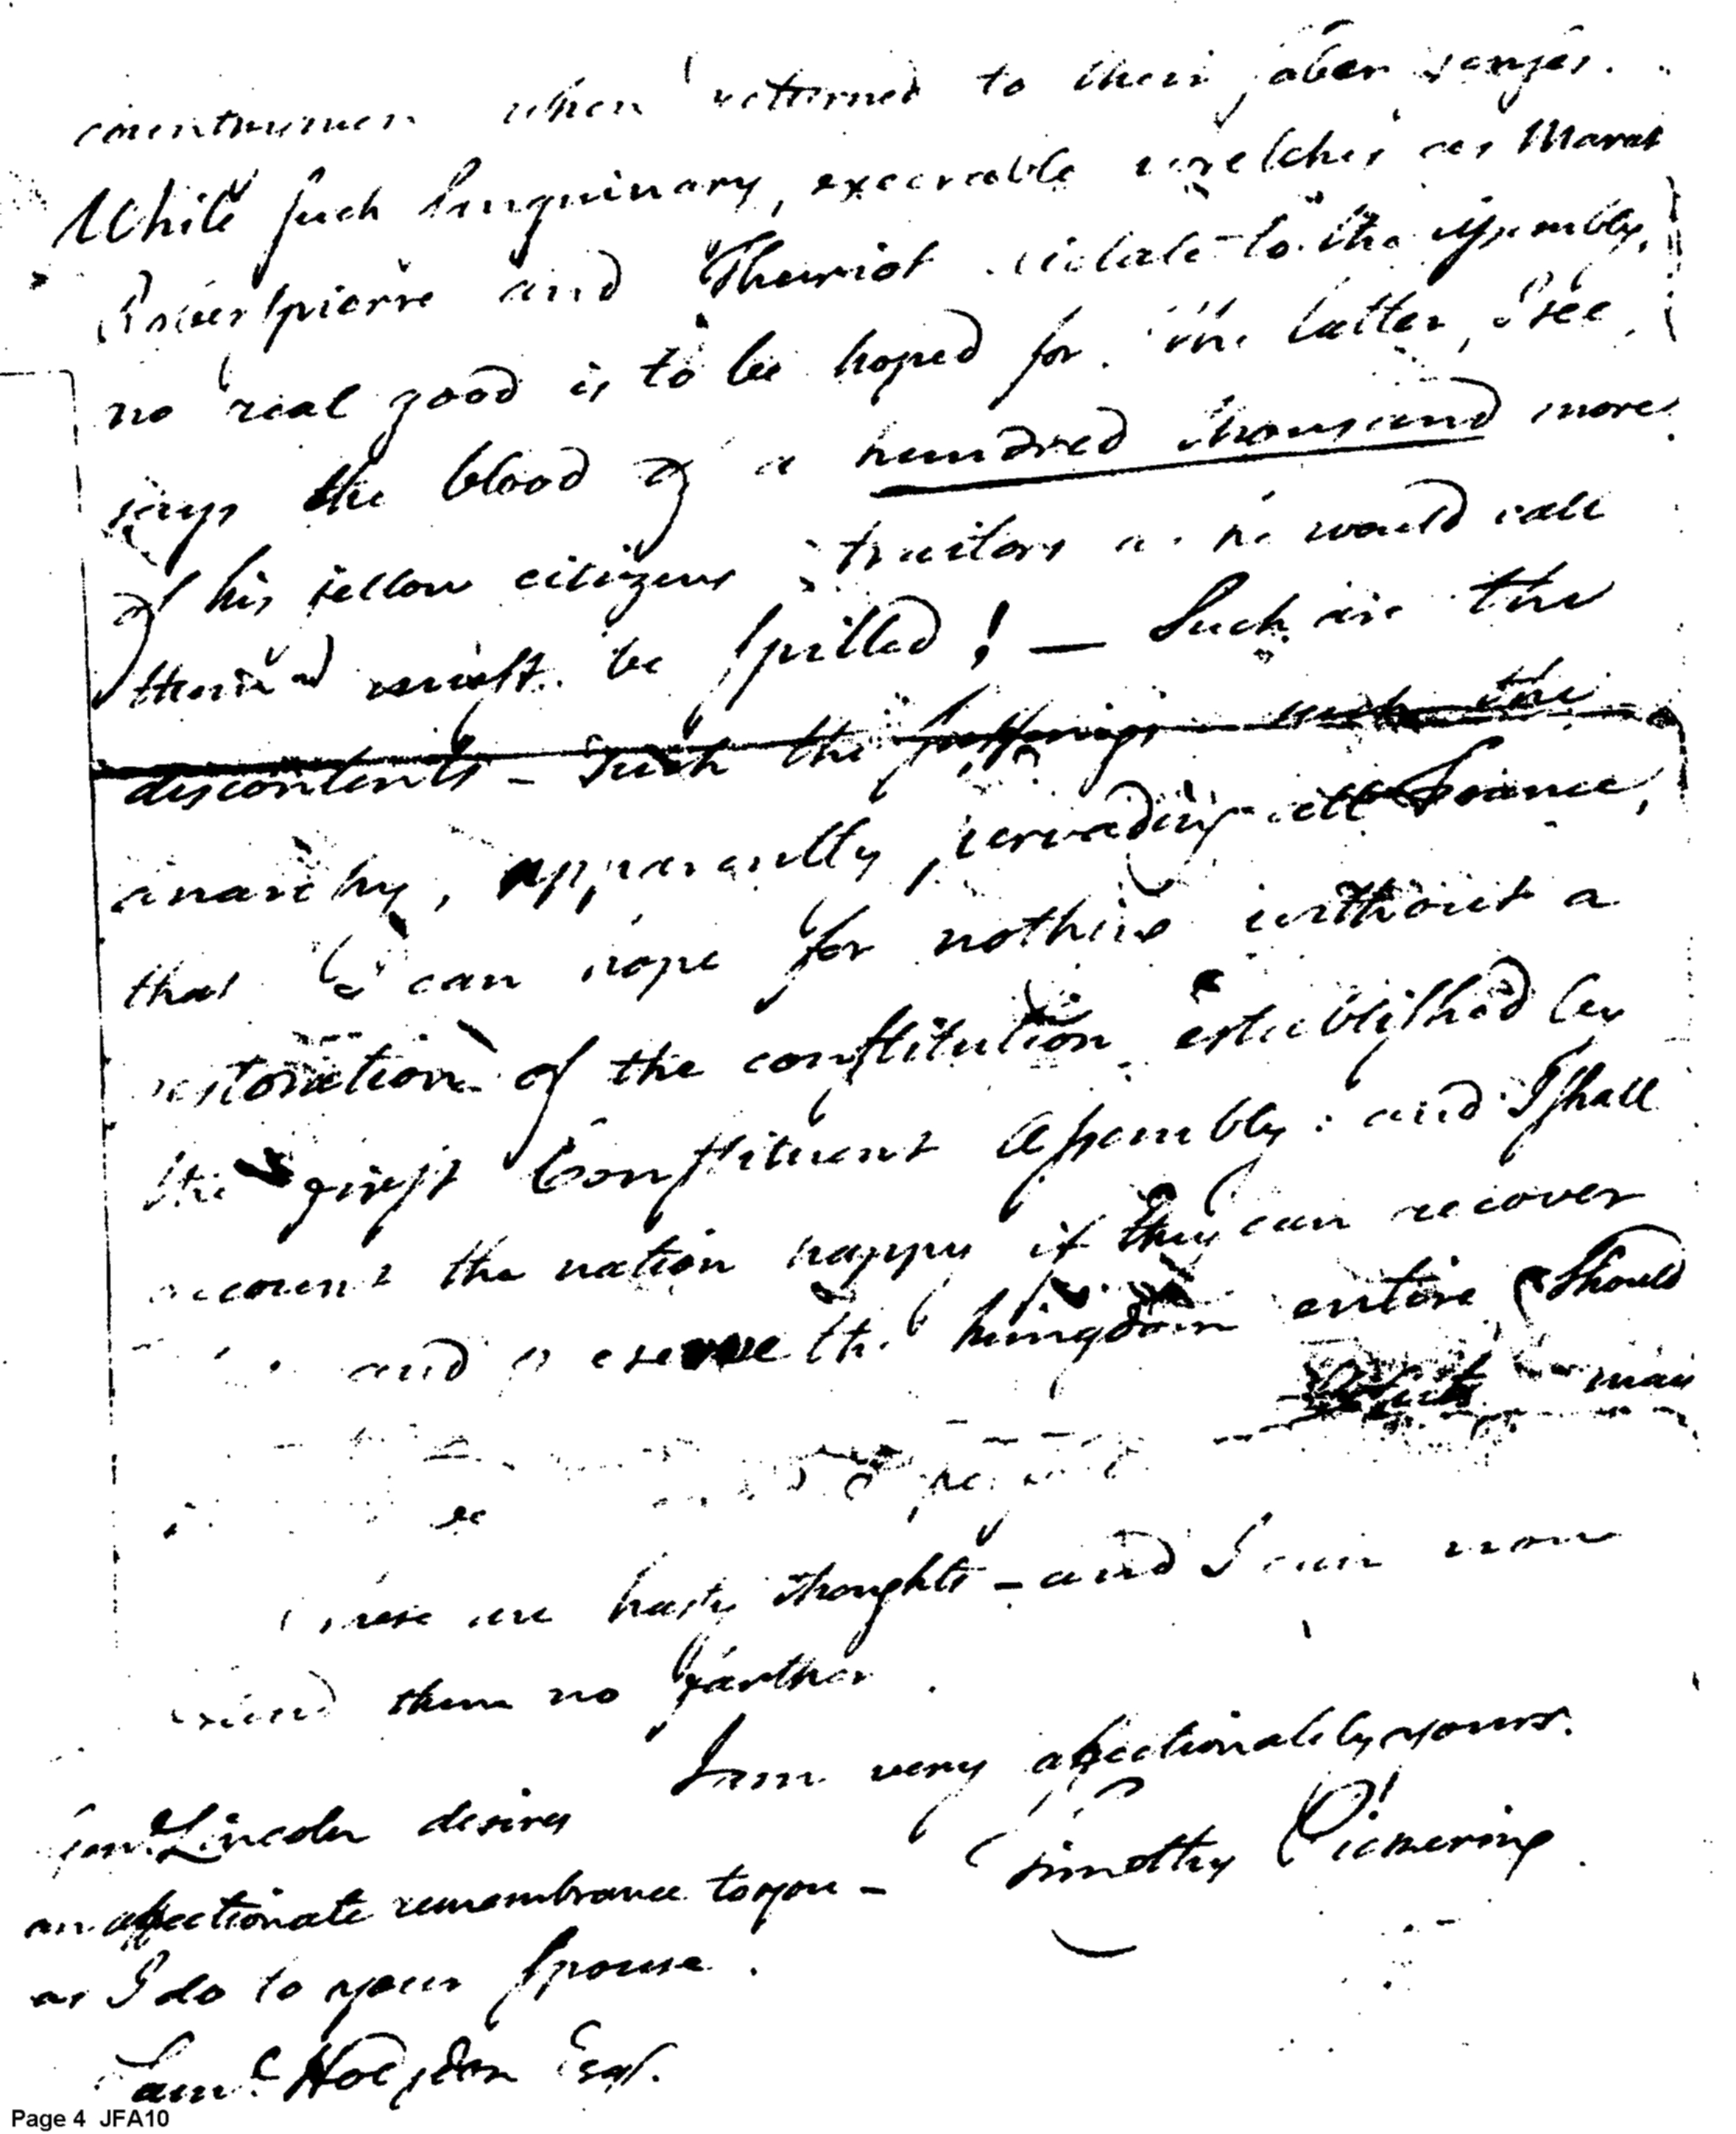 countrymen when returned to their sober senses.
While such sanguinary, execrable wretches as Marat
Roberspierre and Thuriot dictate to the Assembly,
no real good is to be hoped for. The latter, I see,
says the blood of a hundred thousand more
of his fellow citizens, traitors as he would call
them must be spilled! — Such are the
discontents – such the sufferings such the
anarchy, apparently pervading all France,
that I can hope for nothing without a
restoration of the constitution established by
the first Constituent Assembly: and I shall
account the nation happy if they can recover
and preserve the kingdom entire Should
may
be
These are hasty thoughts – and I can now
extend them no farther.
I am very affectionately yours.
Timothy Pickering
Genl. Lincoln desires
an affectionate remembrance to you –
as I do to your Spouse.
Saml. Hodgdon Esqr.
Page 4 JFA10